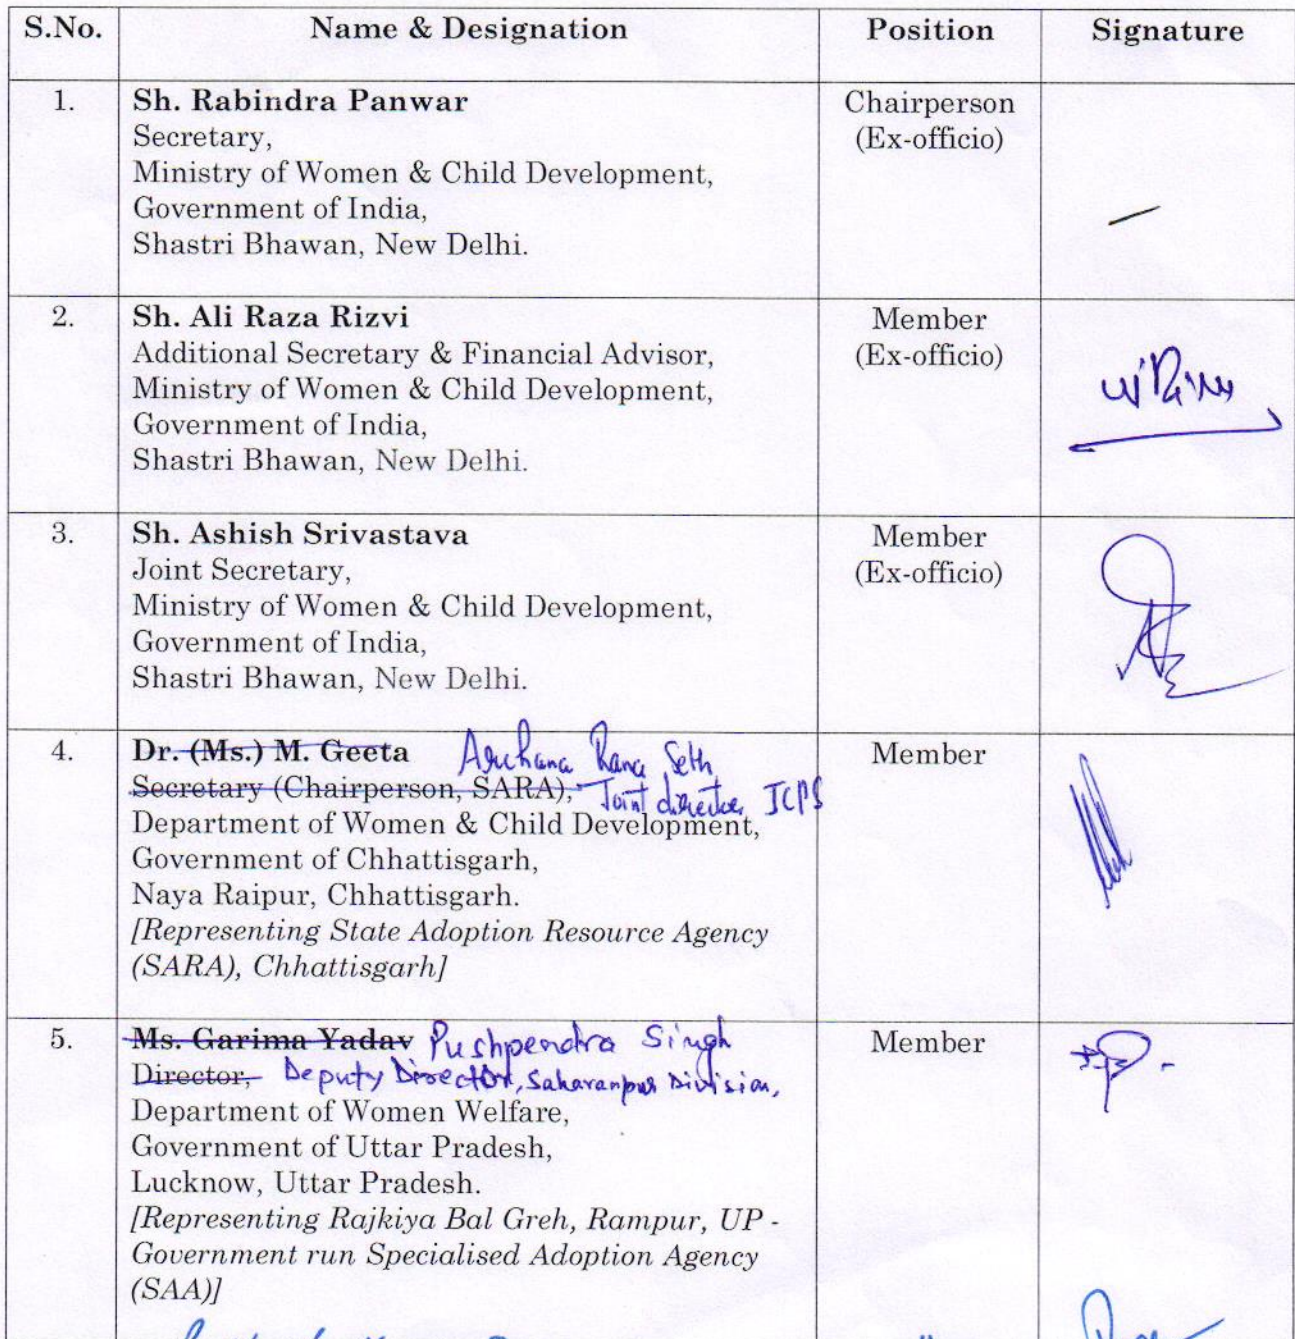 S.No. Name & Designation Position Signature
1. Sh. Rabindra Panwar Chairperson
Secretary, (Ex-officio)
Ministry of Women & Child Development,
Government of India,
Shastri Bhawan, New Delhi.
2. Sh. Ali Raza Rizvi Member
Additional Secretary & Financial Advisor, (Ex-officio)
Ministry of Women & Child Development,
Government of India,
Shastri Bhawan, New Delhi.
3. Sh. Ashish Srivastava Member
Joint Secretary, (Ex-officio)
Ministry of Women & Child Development,
Government of India,
Shastri Bhawan, New Delhi.
4. Dr. (Ms.) M. Geeta Archana Rana Seth Member
Secretary (Chairperson, SARA), Joint director ICPS
Department of Women & Child Development,
Government of Chhattisgarh,
Naya Raipur, Chhattisgarh.
[Representing State Adoption Resource Agency
(SARA), Chhattisgarh]
5. Ms. Garima Yadav Pushpendra Singh Member
Director, Deputy Director, Saharanpur Division,
Department of Women Welfare,
Government of Uttar Pradesh,
Lucknow, Uttar Pradesh.
[Representing Rajkiya Bal Greh, Rampur, UP -
Government run Specialised Adoption Agency
(SAA)]